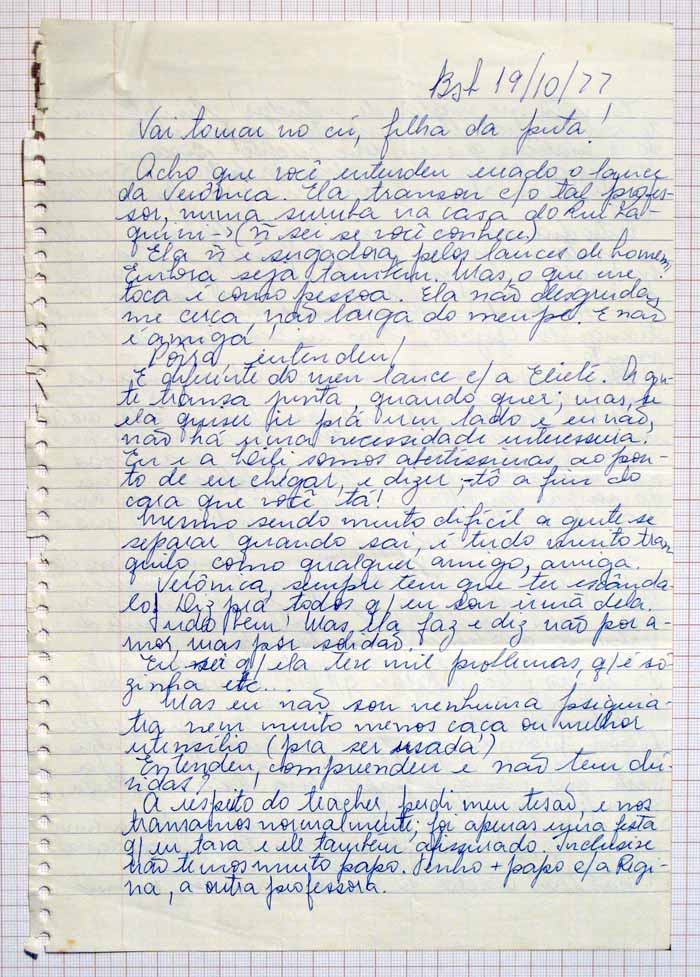 Bsb 19/10/77
Vai tomar no cú, filha da puta!
Acho que você entendeu errado o lance
da Verônica. Ela transou c/o tal profes-
sor, numa suruba na casa do Rui
(ñ sei se você conhece)
Ela ñ é sugadora, pelos lances de homem,
Embora seja também. Mas, o que me
toca é como pessoa. Ela não desgruda,
me suga, não larga do meu pé. E não
é amiga!
Pôrra, entendeu!
É diferente do meu lance c/ a Eliete. A gen-
te transa junta, quando quer; mas, se
ela quiser ir prá um lado e eu não,
não há uma necessidade
Eu e a somos abertíssimas, ao pon-
to de eu chegar, e dizer; -tô a fim do
cara que você tá!
Mesmo sendo muito difícil a gente se
separar quando sai, é tudo muito tran
quilo, como qualquer amigo, amiga.
Verônica, sempre tem que ter escânda-
lo! Diz prá todos q/ eu sou irmã dela.
Tudo bem! Mas, ela faz e diz não por a-
mor, mas por solidão.
Eu sei q/ ela tem mil problemas, q/ é sò-
zinha etc...
Mas eu não sou nenhuma psiquia-
tra nem muito menos caça ou melhor
utensílio (pra ser usada)
Entendeu, compreendeu e não tem dú-
vidas?
A respeito do teacher, perdi meu tesão, e nos
transamos normalmente; foi apenas numa festa
q/ eu tava e ele também Inclusive
não temos muito papo. Tenho + papo c/a Regi-
na, a outra professora.